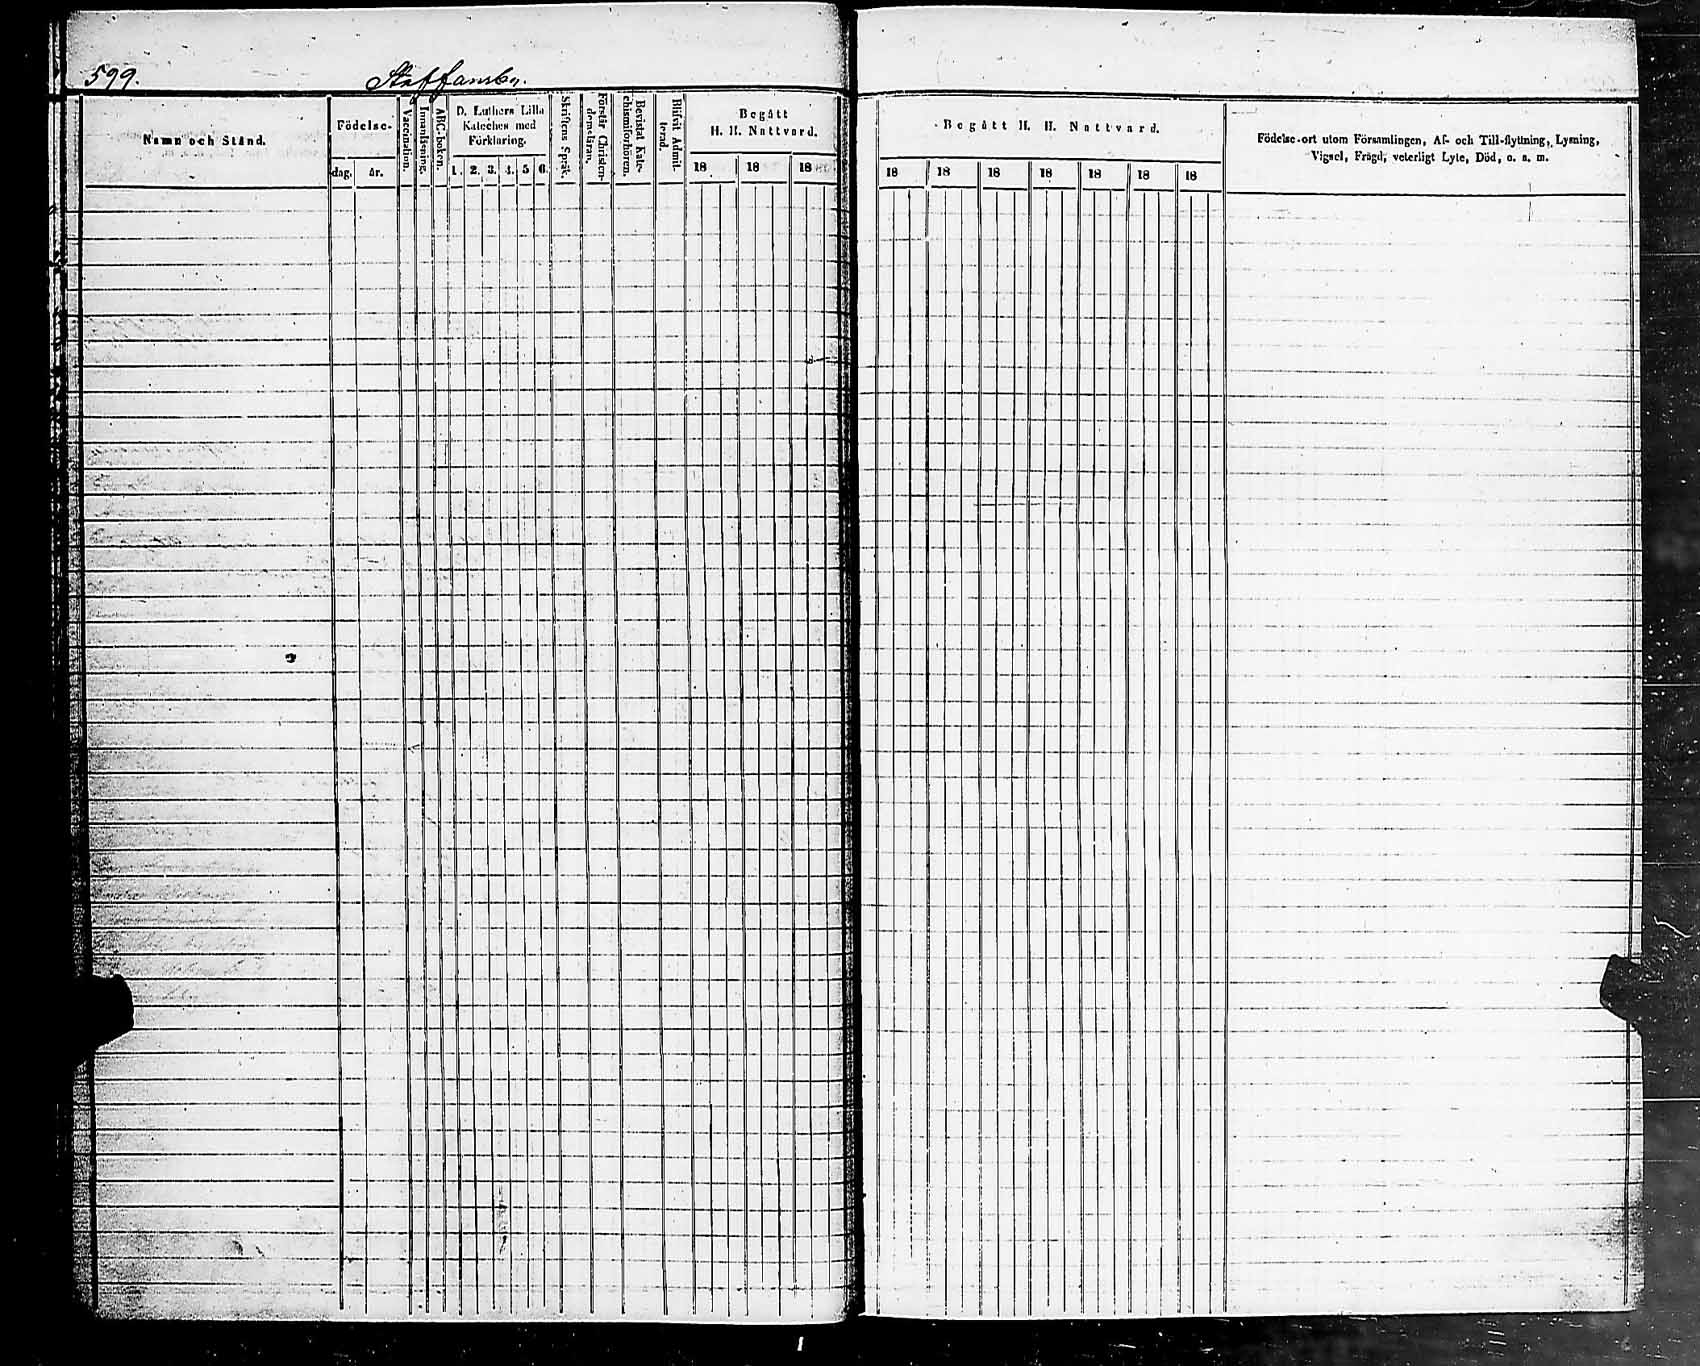 599. Staffansby.
Namn och Stånd.
Födelse-
dag.
år.
Vaccination.
Innanläsning.
ABC-boken.
D. Luthers Lilla
Kateches med
Förklaring.
1. 2. 3. 4. 5 6.
Skriftens Språk.
Förstår Christen-
domsläran.
Bevistat Kate-
chismiförhören.
Blifvit Admit-
terad.
Begått
H. H. Nattvard.
18 18 18
Begått H. H. Nattvard.
18 18 18 18 18 18 18
Födelse-ort utom Församlingen, Af- och Till-flyttning, Lysning,
Vigsel, Frägd, veterligt Lyte, Död, o. s. m.